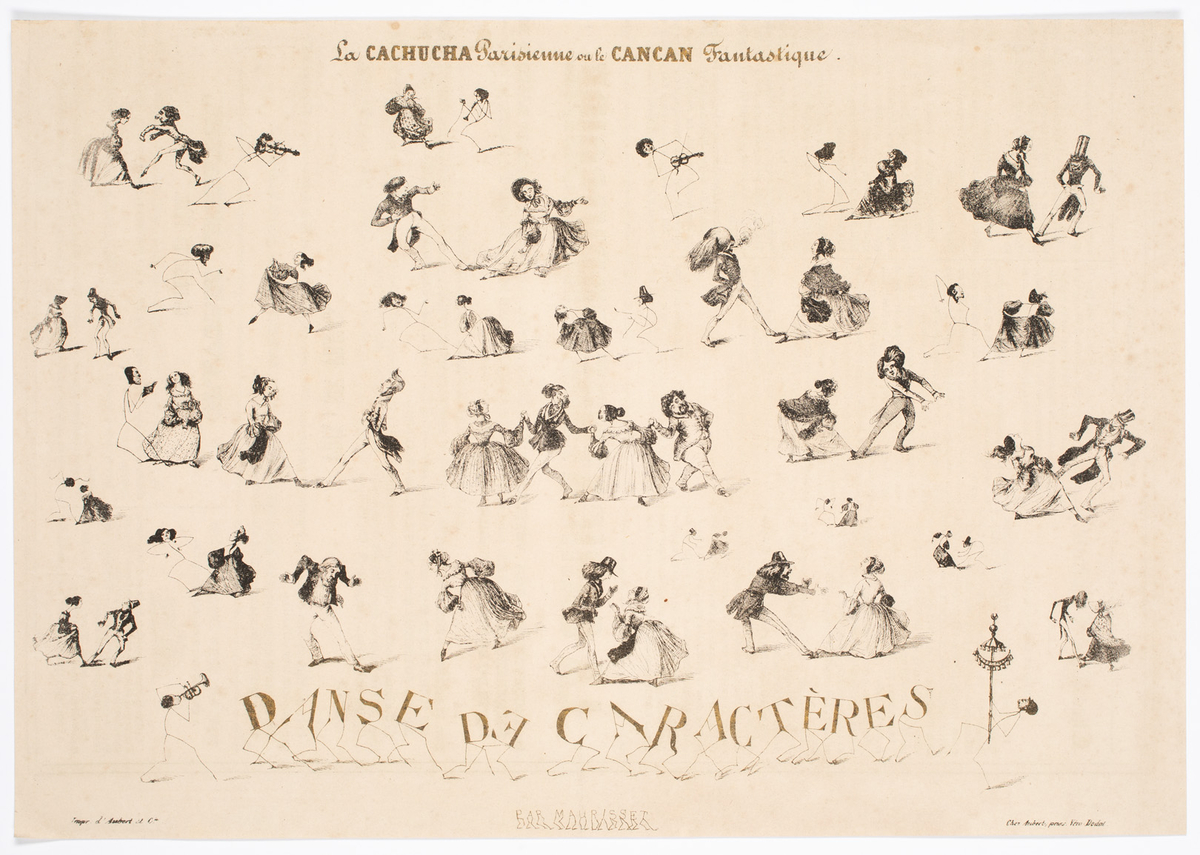 La CACHUCHA Parisienne ou le CANCAN Fantastique.
DANSE DE CARACTÈRES
PAR MAURISSET
Impr. d'Aubert & Cie
Chez Aubert, galerie Véro Dodat